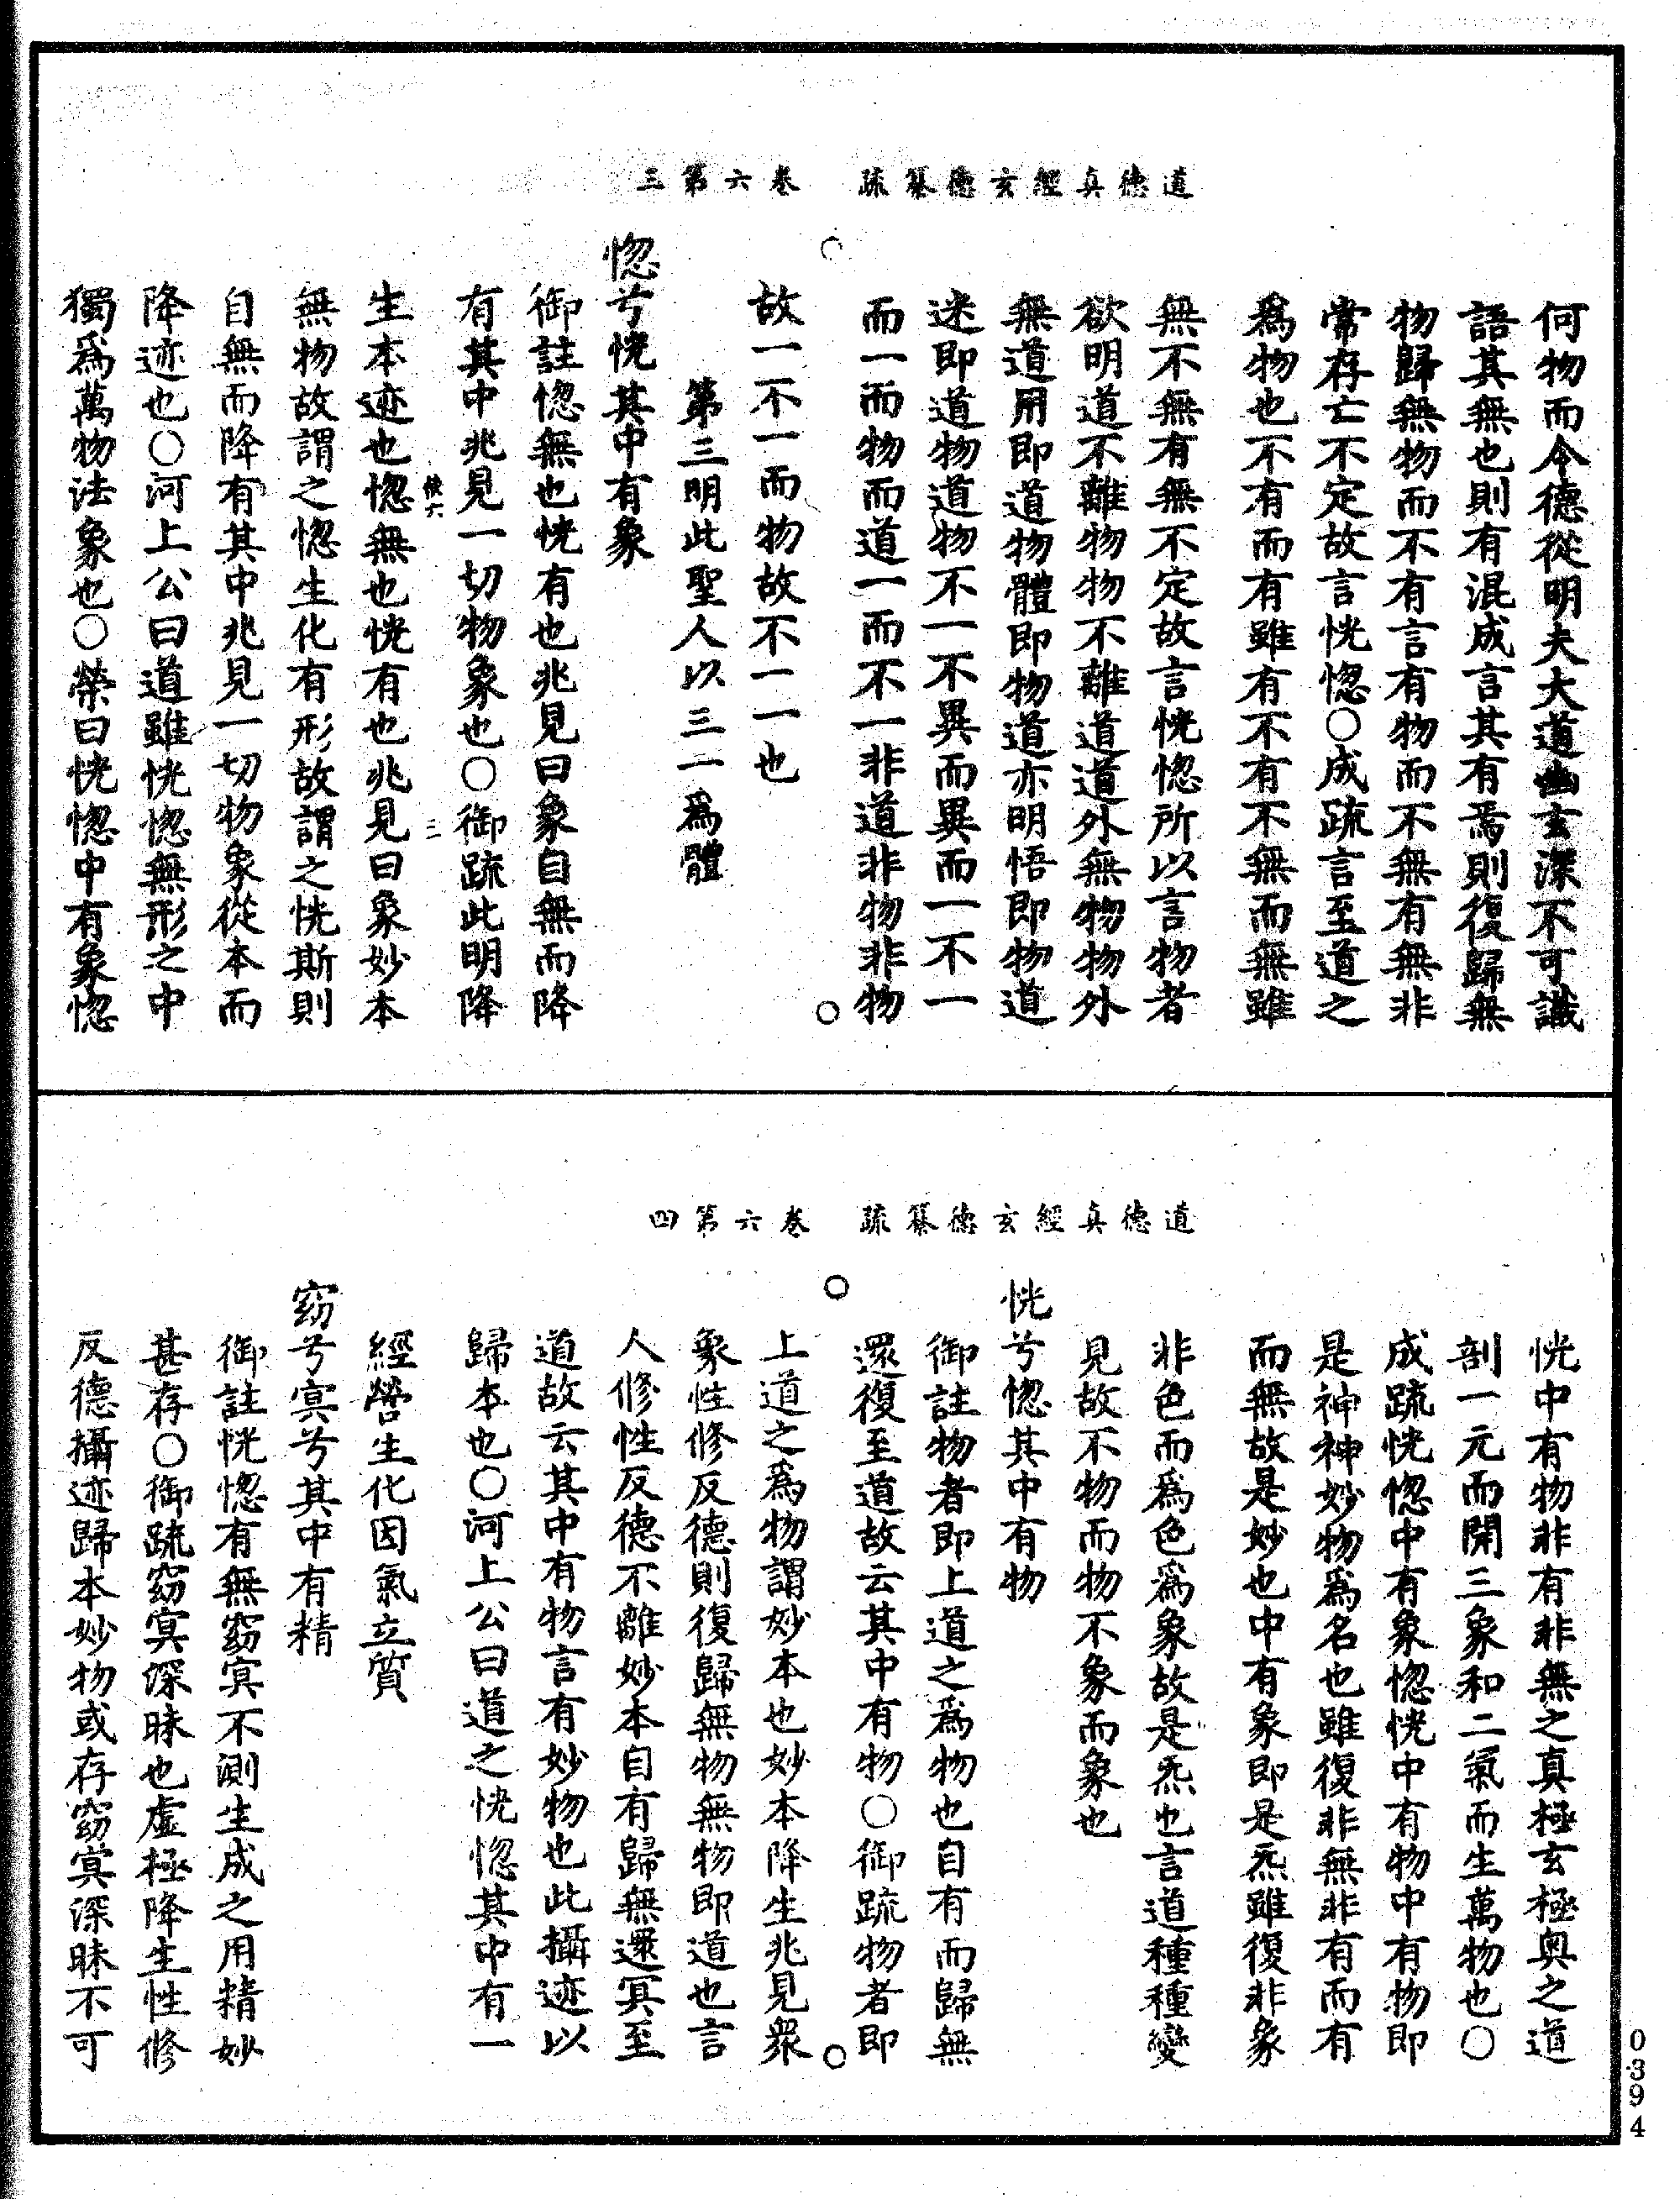 道德真經玄德纂疏　卷六第三
何物而令德從明夫大道幽玄深不可識
語其無也則有混成言其有焉則復歸無
物歸無物而不有言有物而不無有無非
常存亡不定故言恍惚○成疏言至道之
爲物也不有而有雖有不有不無而無雖
無不無有無不定故言恍惚所以言物者
欲明道不離物物不離道道外無物物外
無道用即道物體即物道亦明悟即物道
迷即道物道物不一不異而異而一不一
而一而物而道一而不一非道非物非物
故一不一而物故不一一也
第三明此聖人以三一爲體
惚兮恍其中有象
御註惚無也恍有也兆見曰象自無而降
有其中兆見一切物象也○御疏此明降
生本迹也惚無也恍有也兆見曰象妙本
無物故謂之惚生化有形故謂之恍斯則
自無而降有其中兆見一切物象從本而
降迹也○河上公曰道雖恍惚無形之中
獨爲萬物法象也○榮曰恍惚中有象惚
道德真經玄德纂疏　卷六第四
恍中有物非有非無之真極玄極奧之道
剖一元而開三象和二氣而生萬物也○
成疏恍惚中有象惚恍中有物中有物即
是神神妙物爲名也雖復非無非有而有
而無故是妙也中有象即是炁雖復非象
非色而爲色爲象故是炁也言道種種變
見故不物而物不象而象也
恍兮惚其中有物
御註物者即上道之爲物也自有而歸無
還復至道故云其中有物○御疏物者即
上道之爲物謂妙本也妙本降生兆見衆
象性修反德則復歸無物無物即道也言
人修性反德不離妙本自有歸無還冥至
道故云其中有物言有妙物也此攝迹以
歸本也○河上公曰道之恍惚其中有一
經營生化因氣立質
窈兮冥兮其中有精
御註恍惚有無窈冥不測生成之用精妙
甚存○御疏窈冥深昧也虛極降生性修
反德攝迹歸本妙物或存窈冥深昧不可
0394